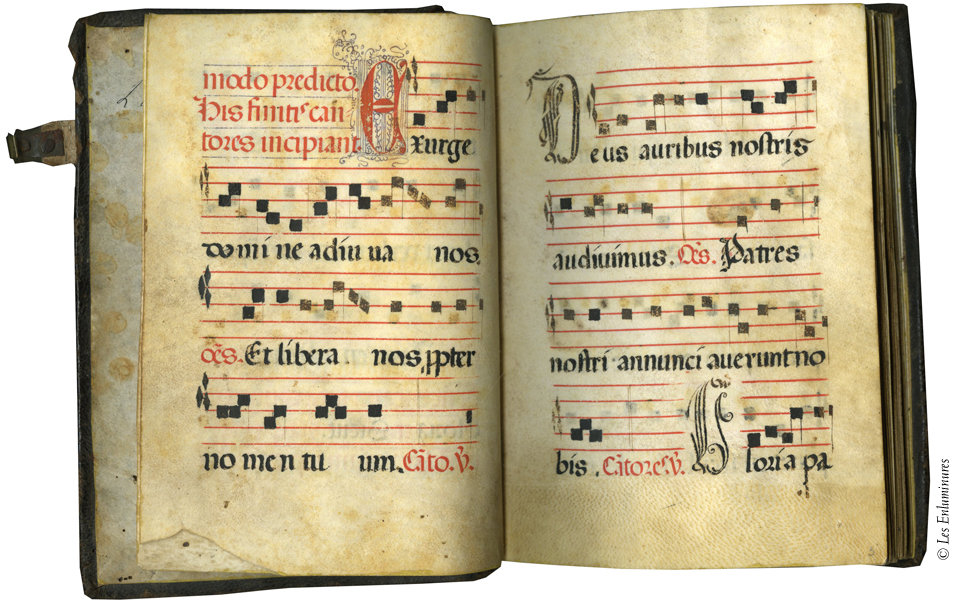 modo predicto.
His finitis can
tores incipiant. Exurge
domi ne adiu ua nos.
Oēs. Et libera nos, ꝓpter
no men tu um. Cāto. V̄.
Deus auribus nostris
audiuimus. Oēs. Patres
nostri annunci auerunt no
bis. Cātores. V̄. Gloria pa
© Les Enluminures